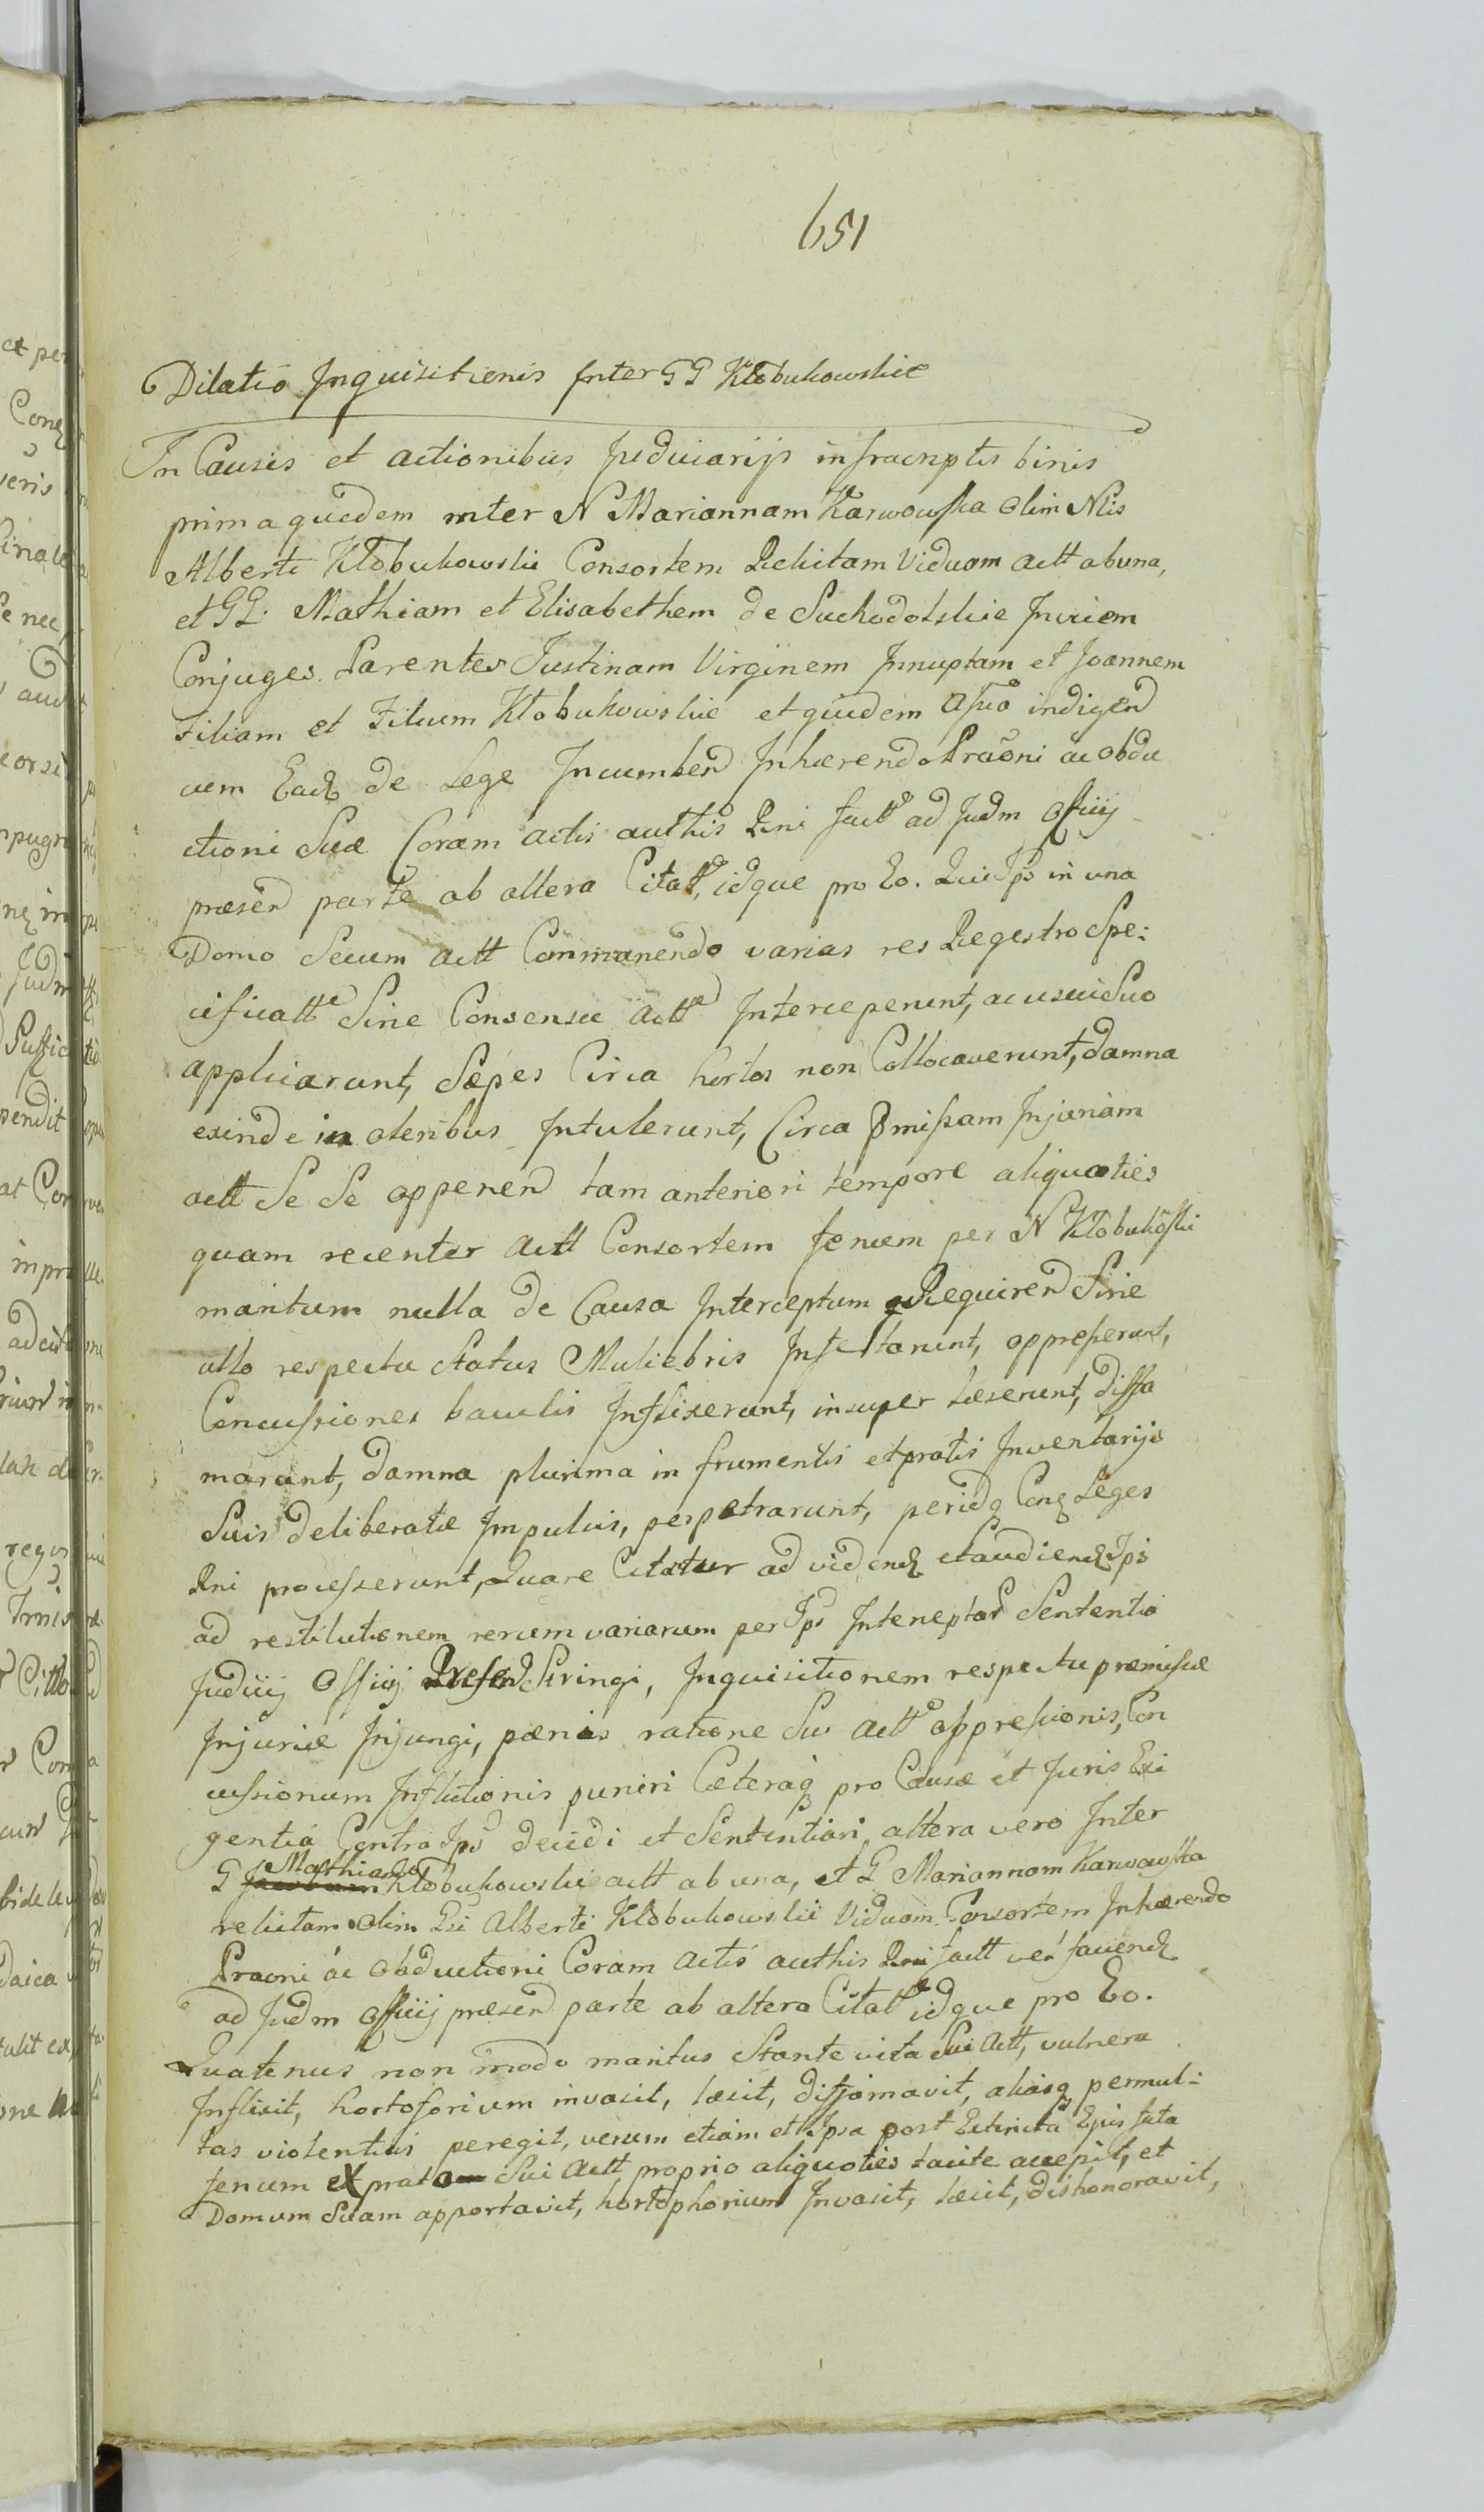 651
Dilatio Inquisitionis Inter GG Kłobukowskie
In Causis et actionibus Judiciarijs infrascriptis binis
prima quidem inter N Mariannam Karwowska Olim Nlis
Alberti Kłobukowski Consortem Relictam Viduam actt ab una,
et GG. Mathiam et Elisabethem de Suchodolskie Invicem
Conjuges Parentes Justinam Virginem Innuptam et Joannem
Filiam et Filium Kłobukowskie et quidem indigend
vem Ead de Lege Incumben Inhærendo Praoni ac obdu
ctioni Suæ Coram actis authis Rni factt ad Judm Officij
præsen parte ab altera Citatt, idque pro Eo. Quia Ips in una
Domo Secum actt Commanendo varias res Regestro Spe:
cificatt Sine Consensu actt Interceperunt, ac usui Suo
applicarunt, Sæpes Circa hortos non Collocaverunt, damna
exinde in oleribus Intulerunt, Circa pmissam Injuriam
actt Se Se opponen tam anteriori tempore aliquoties
quam recenter actt Consortem fenum per N Kłobukoski
maritum nulla de Causa Interceptum Requiren Sine
ullo respectu Status Muliebris Infestarunt, oppresserunt,
Concussiones baculis Inflixerunt, insuper læserunt, diffa
marunt, damna plurima in frumentis et pratis Inventarijs
Suis deliberate Impulsis, perpetrarunt, per idq Conq Leges
Rni processerunt, Quare Citatur ad videnq et audienq Ips
ad restitutionem rerum variarum per Ips Intercepta Sententia
Judicij Officij Presen Stringi, Inquisitionem respectu præmissæ
Injuriæ Injungi, pænis ratione Sui actt oppressionis, Con
cussionum Inflictionis puniri Cæteraq pro Causæ et Juris Exi
gentia Contra Ips decidi et Sententiari, altera vero Inter
Mathiam
G Kłobukowskie actt ab una, et G Mariannam Karwowska
relictam olim Gsi Alberti Kłobukowski Viduam Consortem Inhærendo
Praoni ac Obductioni Coram actis authis Rni factt faciend
ad Judm Officij præsen parte ab altera Citatt idque pro Eo.
Quatenus non modo maritus Stante vita Sui Actt, vulnera
Inflixit, hortoforium invasit, læsit, diffamavit, aliasq permul:
tas violentias peregit, verum etiam et Ipsa post Extincta Ejus fata
fenum ex prato Sui Actt proprio aliquoties tacite accepit, et
Domum Suam apportavit, hortophorium Invasit, læsit, dishonoravit,